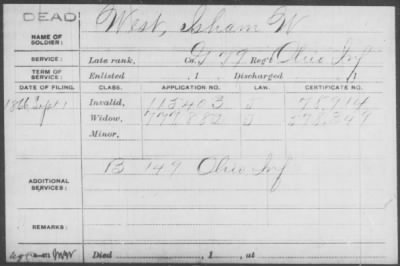 DEAD
NAME OF SOLDIER: West, Isham W
SERVICE: Late rank, Co. G 79 Reg't Ohio Inf
TERM OF SERVICE: Enlisted , 1 Discharged , 1
DATE OF FILING. CLASS. APPLICATION NO. LAW. CERTIFICATE NO.
1866 Sept 1 Invalid, 113403 78,914
Widow, 777,882 578,349
Minor,
ADDITIONAL SERVICES: B 149 Ohio Inf
REMARKS:
Died , 1 , at